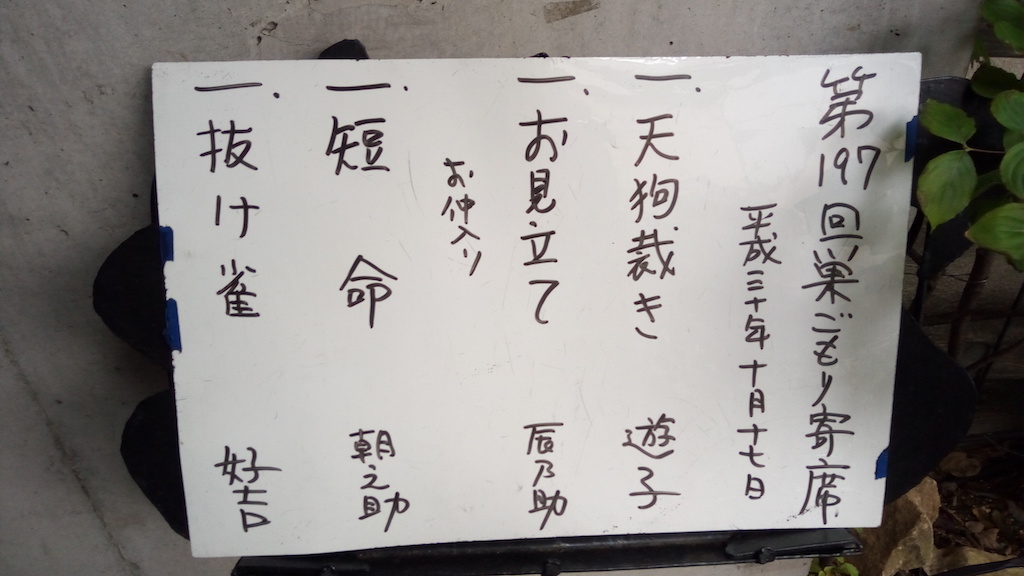 第197回巣ごもり寄席
平成三十年十月十七日
一.天狗裁き 遊子
一.お見立て 辰乃助
お仲入り
一.短命 朝之助
一.抜け雀 好吉